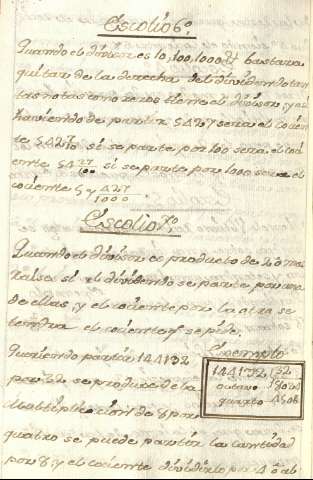 Escolio 6º
Quando el divisor es 10, 100, 1000 &c bastara
quitar de la derecha del dividendo tan
tas notas como zeros tiene el divisor, y asi
haviendo de partir 5427 sera el cocien
te 542 7/10 si se parte por 100 sera el coci
ente 54 27/100 si se parte por 1000 sera el
cociente 5 y 427/1000
Escolio 7º
Quando el divisor es producto de 2 ó mas
si el dividendo se parte por una
de ellas, y el cociente por la otra se
tendra el cociente q se pide.
Queriendo partir 144132 Exemplo
por 32 se produce de la
multiplicacion de 8 por
144132 32
octavo 18024
quarto 4506
quatro se puede partir la cantidad
por 8: y el cociente dividirlo por 4 ó al